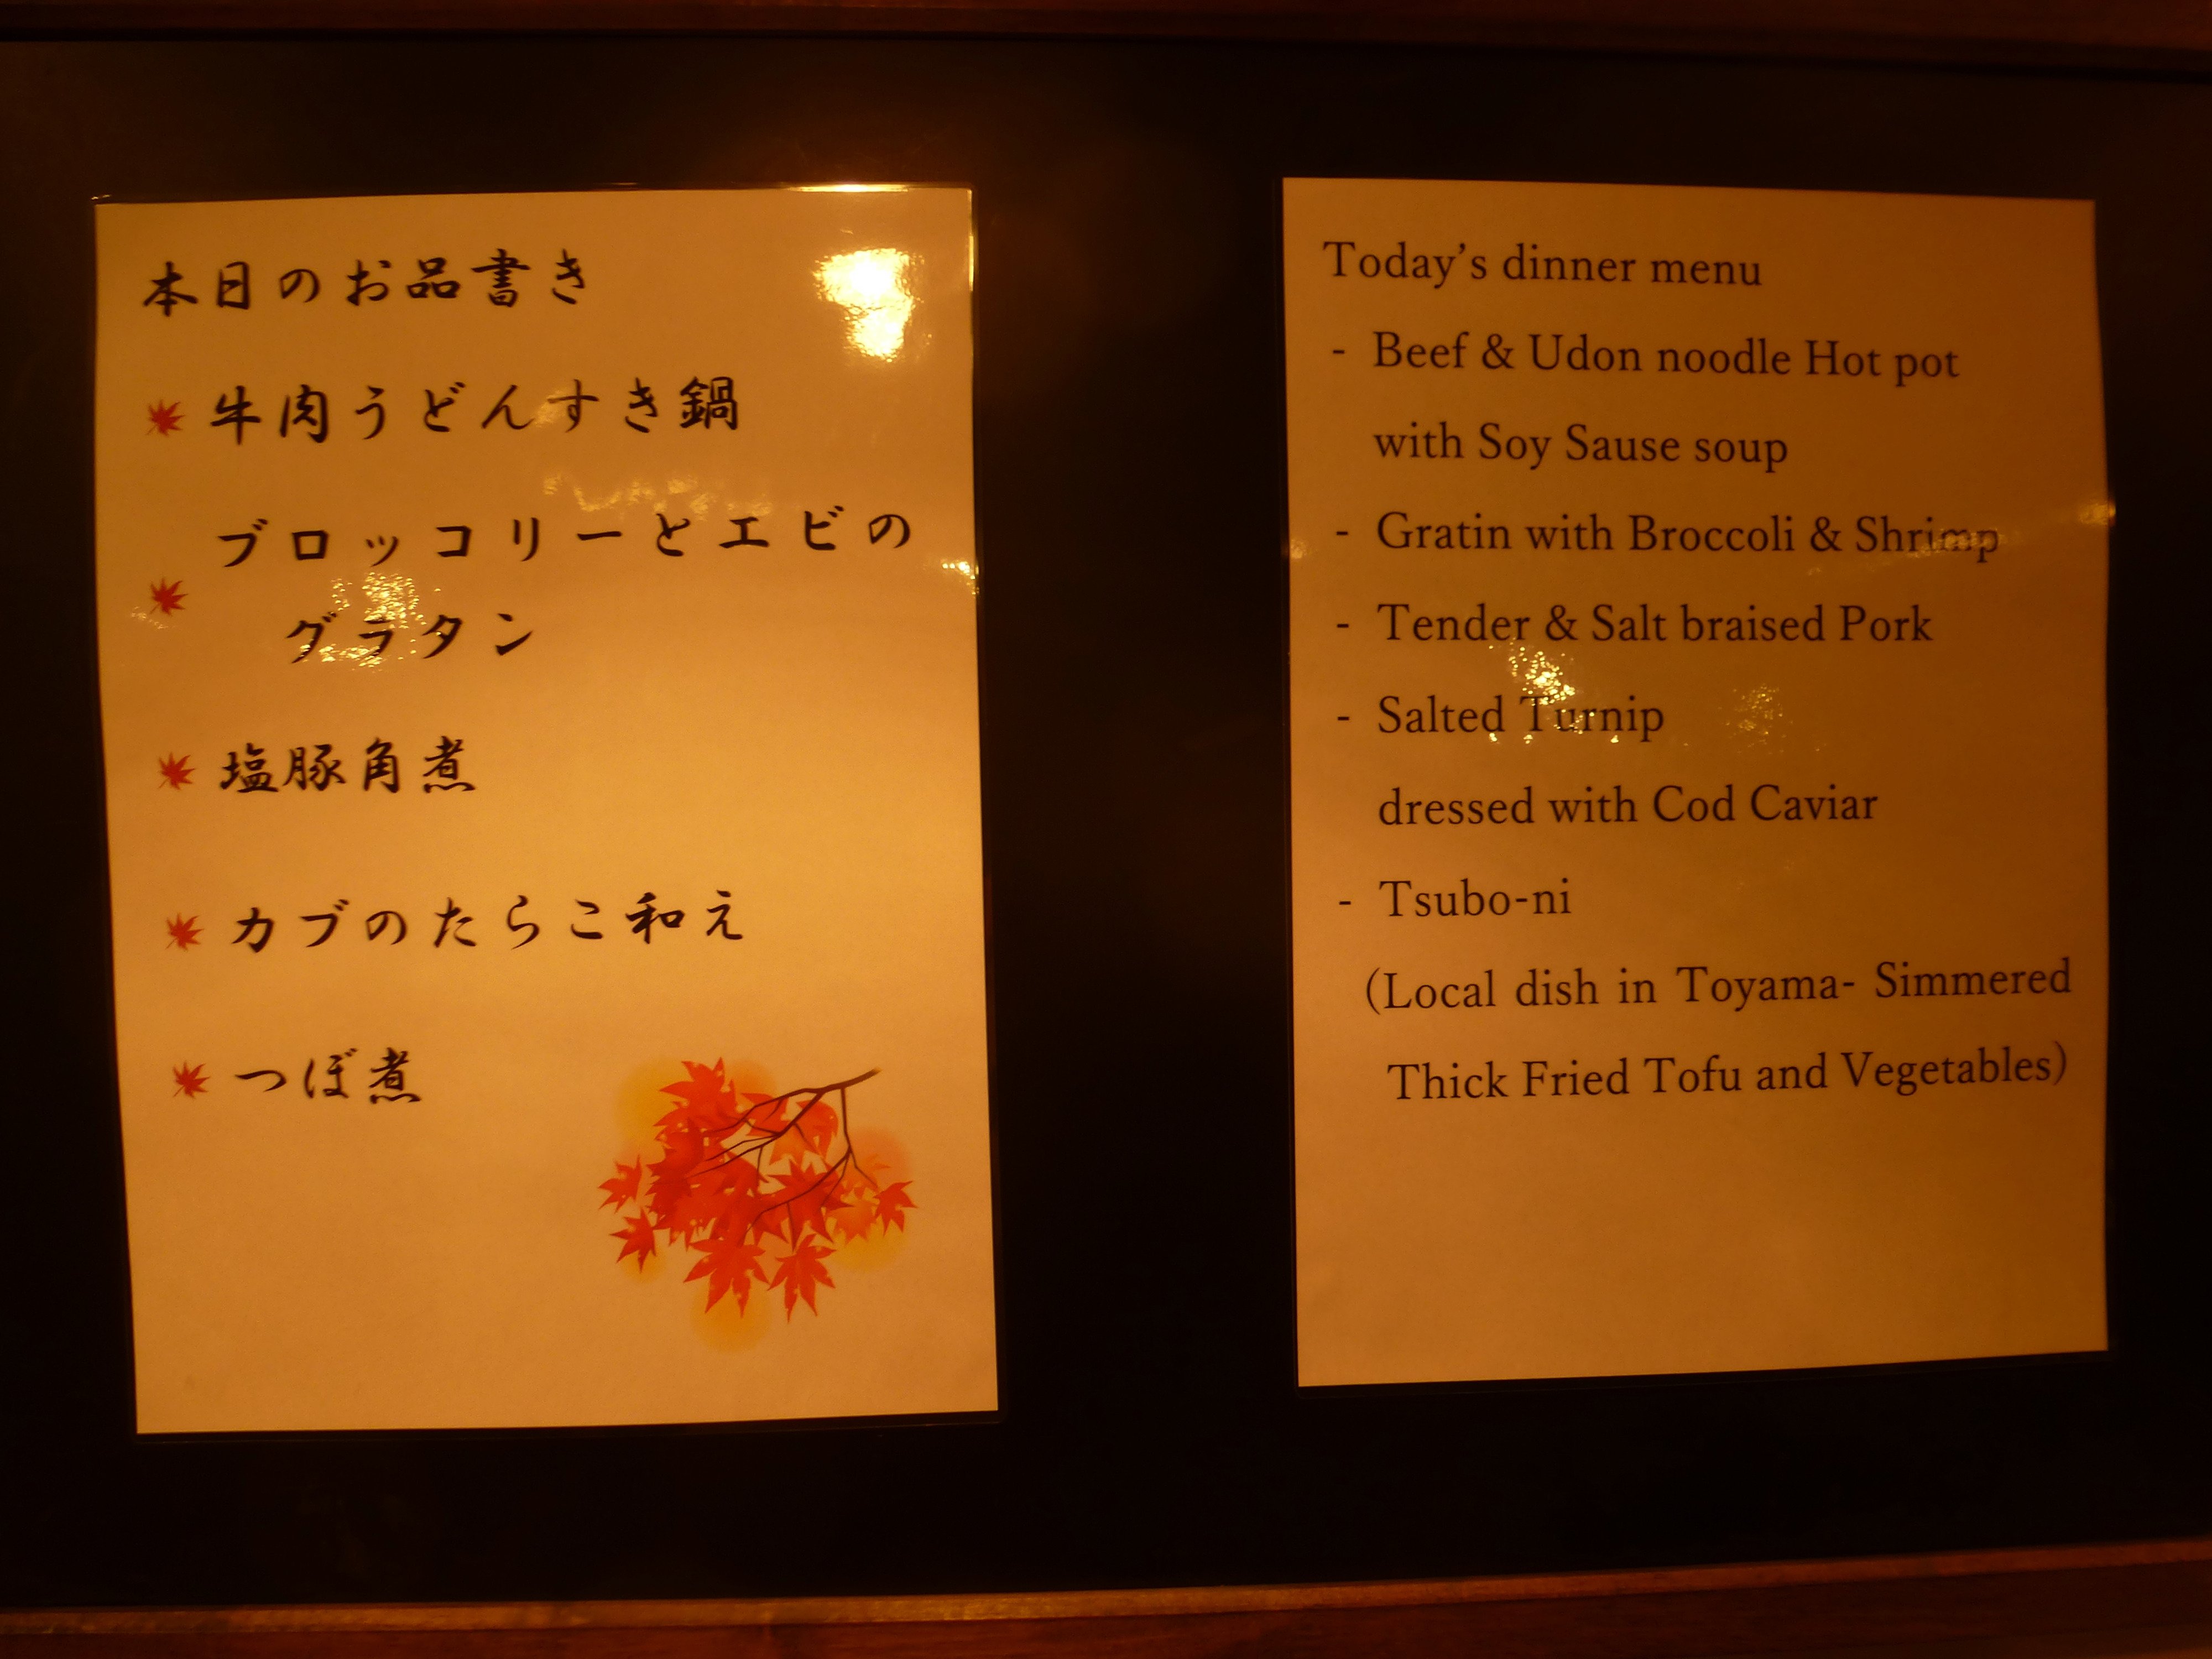 本日のお品書き
牛肉うどんすき鍋
ブロッコリーとエビの
グラタン
塩豚角煮
カブのたらこ和え
つぼ煮
Today's dinner menu
- Beef & Udon noodle Hot pot
with Soy Sause soup
- Gratin with Broccoli & Shrimp
- Tender & Salt braised Pork
- Salted Turnip
dressed with Cod Caviar
- Tsubo-ni
(Local dish in Toyama- Simmered
Thick Fried Tofu and Vegetables)